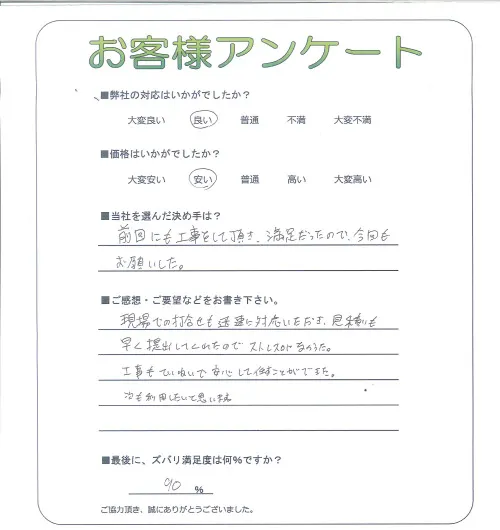 お客様アンケート
■弊社の対応はいかがでしたか？
大変良い 良い 普通 不満 大変不満
■価格はいかがでしたか？
大変安い 安い 普通 高い 大変高い
■当社を選んだ決め手は？
前回にも工事をして頂き、満足だったので、今回も
お願いしました。
■ご感想・ご要望などをお書き下さい。
現場での打合せも迅速に対応いただき、見積りも
早く提出してくれたのでストレスがなかった。
工事もていねいで安心して任すことができた。
次も利用したいて思います
■最後に、ズバリ満足度は何％ですか？
90 ％
ご協力頂き、誠にありがとうございました。